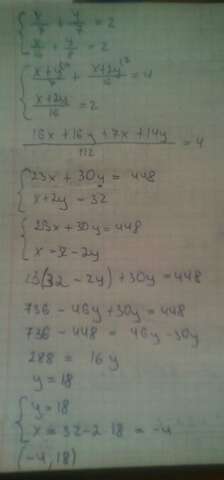 x/7 + y/7 = 2
x/16 + y/8 = 2
x+y/7 + x+2y/16 = 4
x+2y/16 = 2
16x + 16y + 7x + 14y/112 = 4
23x + 30y = 448
x + 2y = 32
23x + 30y = 448
x = 32 - 2y
23(32 - 2y) + 30y = 448
736 - 46y + 30y = 448
736 - 448 = 46y - 30y
288 = 16y
y = 18
y = 18
x = 32 - 2·18 = -4
(-4, 18)